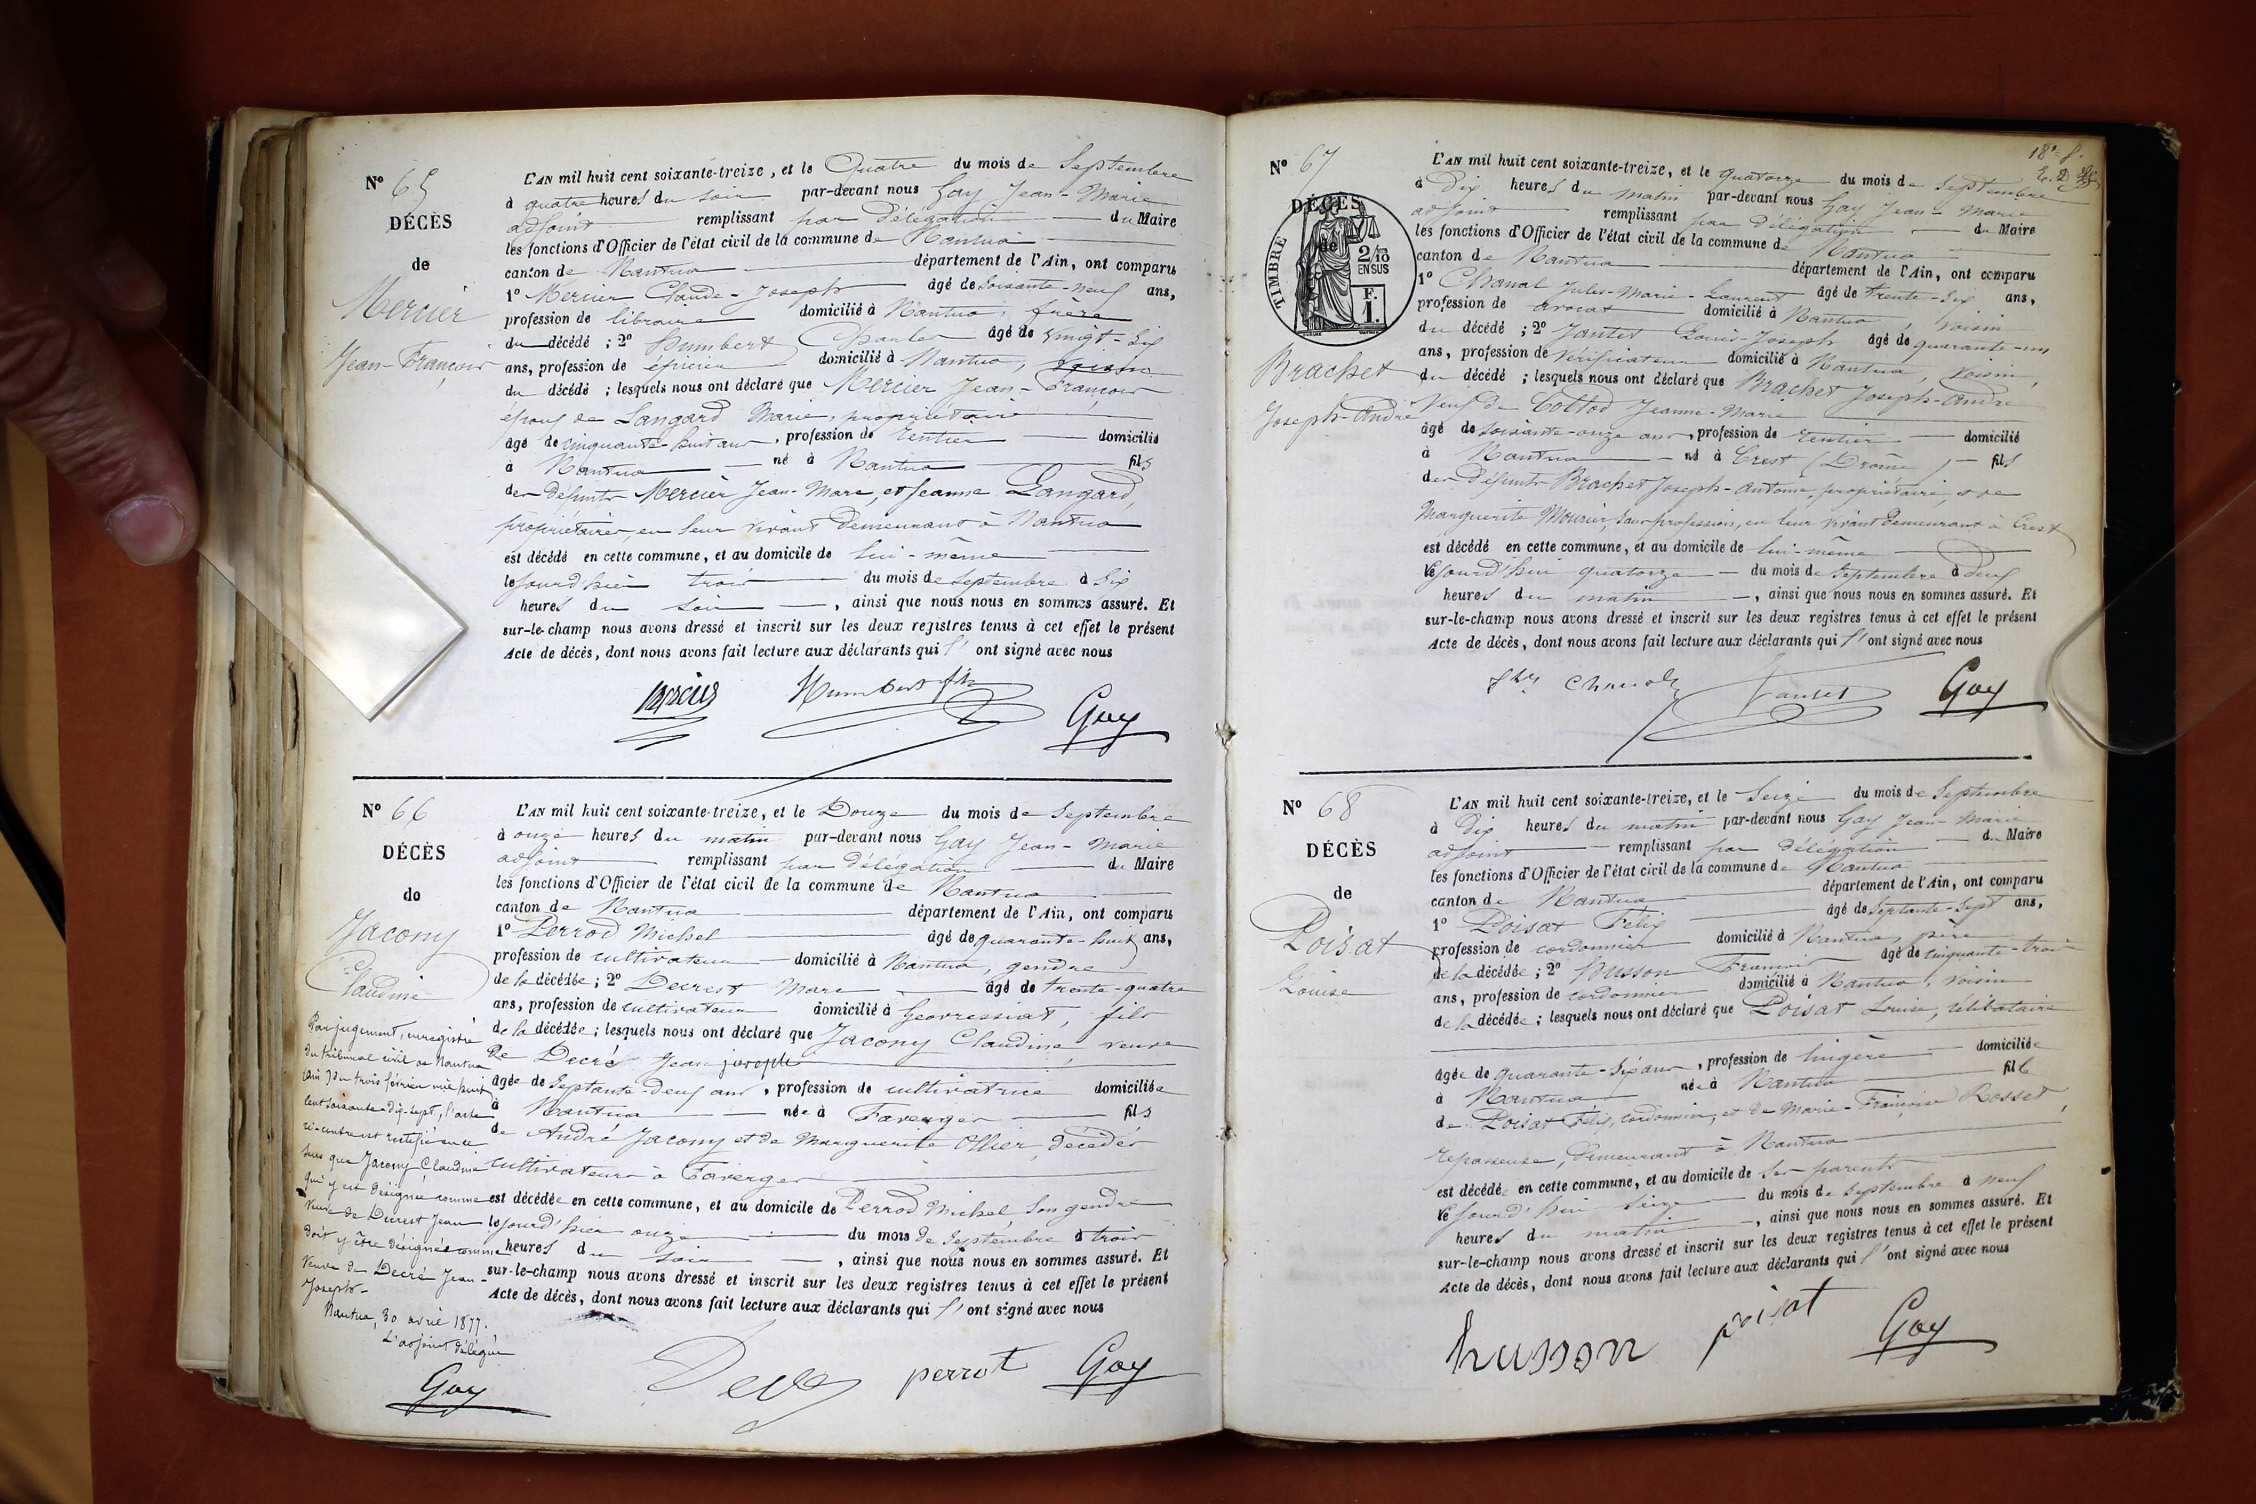 N° 65
DÉCÈS
de
Mercier
Jean-François
L'AN mil huit cent soixante-treize, et le Quatre du mois de Septembre
à quatre heures du soir par-devant nous Gay Jean-Marie
adjoint remplissant par délégation du Maire
les fonctions d'Officier de l'état civil de la commune de Nantua
canton de Nantua département de l'Ain, ont comparu
1° Mercier Claude-Joseph âgé de soixante-neuf ans,
profession de libraire domicilié à Nantua, frère
du décédé ; 2° Humbert Charles âgé de vingt-six
ans, profession de épicier domicilié à Nantua, voisin
du décédé ; lesquels nous ont déclaré que Mercier Jean-François
époux de Langard Marie, propriétaire
âgé de cinquante-huit ans, profession de rentier domicilié
à Nantua né à Nantua fils
des défunts Mercier Jean-Marc, et Jeanne Langard,
propriétaires, en leur vivant demeurant à Nantua
est décédé en cette commune, et au domicile de lui-même
le jourd'hier trois du mois de septembre à six
heures du soir, ainsi que nous nous en sommes assuré. Et
sur-le-champ nous avons dressé et inscrit sur les deux registres tenus à cet effet le présent
Acte de décès, dont nous avons fait lecture aux déclarants qui l' ont signé avec nous
Mercier Humbert fils Gay
N° 66
DÉCÈS
de
Jacony
Claudine
L'AN mil huit cent soixante-treize, et le Douze du mois de Septembre
à onze heures du matin par-devant nous Gay Jean-Marie
adjoint remplissant par délégation du Maire
les fonctions d'Officier de l'état civil de la commune de Nantua
canton de Nantua département de l'Ain, ont comparu
1° Perrod Michel âgé de quarante-huit ans,
profession de cultivateur domicilié à Nantua, gendre
de la décédée ; 2° Decrest Marc âgé de trente-quatre
ans, profession de cultivateur domicilié à Geovressiat, fils
de la décédée ; lesquels nous ont déclaré que Jacony Claudine veuve
De Decré Jean joseph
âgée de septante-deux ans, profession de cultivatrice domiciliée
à Nantua née à Faverges fils
de André Jacony et de Marguerite Ollier, décédés
cultivateurs à Faverges
est décédée en cette commune, et au domicile de Perrod Michel, son gendre
le jourd'hier onze du mois de Septembre à trois
heures du soir, ainsi que nous nous en sommes assuré. Et
sur-le-champ nous avons dressé et inscrit sur les deux registres tenus à cet effet le présent
Acte de décès, dont nous avons fait lecture aux déclarants qui l' ont signé avec nous
Par jugement, enregistré
du tribunal civil de Nantua
(Ain) du trois février mil huit
cent soixante-dix-sept, l'acte
ci-contre est rectifié en ce
sens que Jacony Claudine
qui y est désignée comme
veuve de Decrest Jean
doit y être désignée comme
veuve de Decré Jean-
Joseph-
Nantua, 30 avril 1877.
L'adjoint délégué
Gay
perrot Gay
18e f.
N° 67
DÉCÈS
de
TIMBRE
2/10
EN SUS
F.
1.
Brachet
Joseph-André
L'AN mil huit cent soixante-treize, et le quatorze du mois de Septembre
à Dix heures du matin par-devant nous Gay Jean-Marie
adjoint remplissant par délégation du Maire
les fonctions d'Officier de l'état civil de la commune de Nantua
canton de Nantua département de l'Ain, ont comparu
1° Chanal Jules-Marie-Laurent âgé de trente-six ans,
profession de avocat domicilié à Nantua, voisin
du décédé ; 2° Jantet Louis-Joseph âgé de quarante-un
ans, profession de vérificateur domicilié à Nantua, voisin,
du décédé ; lesquels nous ont déclaré que Brachet Joseph-André
veuf de Cottod Jeanne-Marie
âgé de soixante-onze ans, profession de rentier domicilié
à Nantua né à Crest (Drôme) fils
des défunts Brachet Joseph-Antoine, propriétaire, et de
Marguerite Mourier, sans profession, en leur vivant demeurant à Crest
est décédé en cette commune, et au domicile de lui-même
le jourd'hui quatorze du mois de Septembre à deux
heures du matin, ainsi que nous nous en sommes assuré. Et
sur-le-champ nous avons dressé et inscrit sur les deux registres tenus à cet effet le présent
Acte de décès, dont nous avons fait lecture aux déclarants qui l' ont signé avec nous
Chanal Jantet Gay
N° 68
DÉCÈS
de
Poisat
Louise
L'AN mil huit cent soixante-treize, et le Seize du mois de Septembre
à Dix heures du matin par-devant nous Gay Jean-Marie
adjoint remplissant par délégation du Maire
les fonctions d'Officier de l'état civil de la commune de Nantua
canton de Nantua département de l'Ain, ont comparu
1° Poisat Félix âgé de septante-sept ans,
profession de cordonnier domicilié à Nantua, père
de la décédée ; 2° husson François âgé de cinquante-trois
ans, profession de cordonnier domicilié à Nantua, voisin
de la décédée ; lesquels nous ont déclaré que Poisat Louise, célibataire
âgée de quarante-six ans, profession de lingère domiciliée
à Nantua née à Nantua fille
de Poisat Félix, cordonnier, et de Marie-Françoise Rosset,
repasseuse, demeurant à Nantua
est décédée en cette commune, et au domicile de ses parents
le jourd'hui seize du mois de septembre à neuf
heures du matin, ainsi que nous nous en sommes assuré. Et
sur-le-champ nous avons dressé et inscrit sur les deux registres tenus à cet effet le présent
Acte de décès, dont nous avons fait lecture aux déclarants qui l' ont signé avec nous
husson poisat Gay